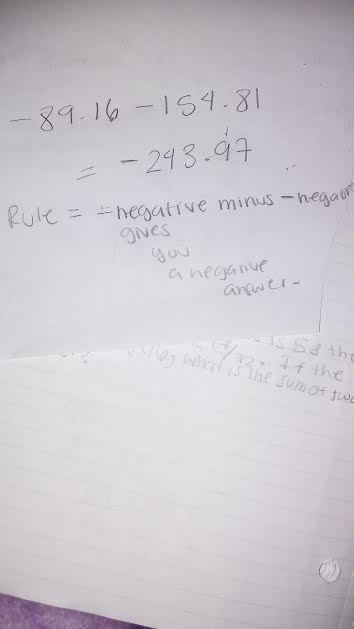 -89.16 -154.81
= -243.97
Rule = -negative minus -negative
gives
you
a negative
answer-
is 58 the
If the
what is the sum of two